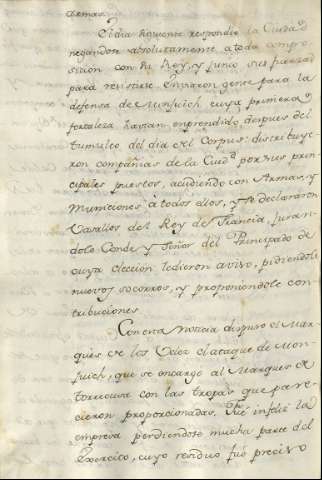 demas.
El dia siguiente respondio la Ciudad
negandose absolutamente a toda compo
sicion con su Rey, y junto sus fuerzas
para resistirle. Enviaron gente para la
defensa de Monjuich cuya primera
fortaleza havian emprendido despues del
tumulto del dia del Corpus: distribuye
ron compañias de la Ciudd por sus prin
cipales puestos, acudiendo con Armas, y
Municiones à todos ellos, y se declararon
Vasallos del Rey de Francia, juran
dolo Conde y Señor del Principado de
cuya eleccion le dieron aviso, pidiendole
nuevos socorros, y proponiendole con
tribuciones.
Con esta noticia dispuso el Mar
ques de los Velez el ataque de Mon
juich, que se encargo al Marques de
Torrecusa con las tropas que pare
cieron proporcionadas. Fué infeliz la
empresa perdiendose mucha parte del
Exercito, cuyo residuo fué preciso